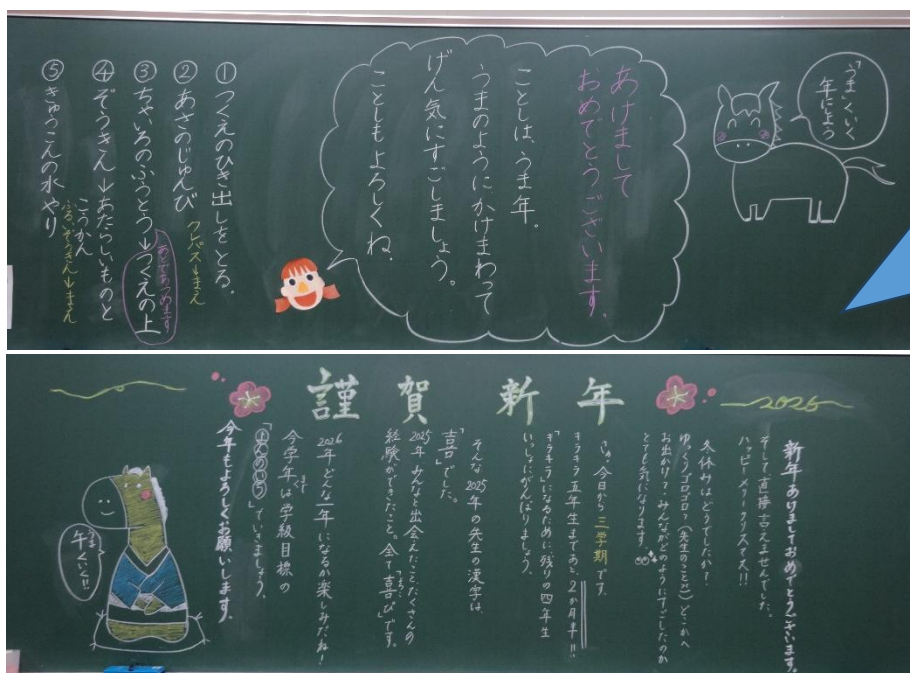 「うま」くいく
年にしよう
あけまして
おめでとうございます。
ことしは、うま年。
うまのようにかけまわって
げん気にすごしましょう。
ことしもよろしくね。
①つくえのひき出しをとる。
②あさのじゅんび
クレパス→まえ
③ちゃいろのふうとう→つくえの上
あとであつめます
④ぞうきん→あたらしいものと
こうかん
ふるいぞうきん→まえ
⑤きゅうこんの水やり
謹賀新年
2026
新年あけましておめでとうございます。
そして直接言えませんでした。
ハッピーメリークリスマス!!
冬休みはどうでしたか?
ゆっくりゴロゴロ?(先生のこと)どこかへ
お出かけ?みんながどのようにすごしたのか
とても気になります。
さぁ、今日から三学期です。
キラキラ五年生まであと、2か月半!!
「キラキラ」になるために残りの四年生
いっしょにがんばりましょう。
そんな2025年の先生の漢字は
「喜」でした。
2025年みんなと出会えたこと、たくさんの
経験ができたこと。全て「喜び」です。
2026年どんな一年になるか楽しみだね!
今学年は学級目標の
でいきましょう。
今年もよろしくお願いします。
午くいく!!
うま